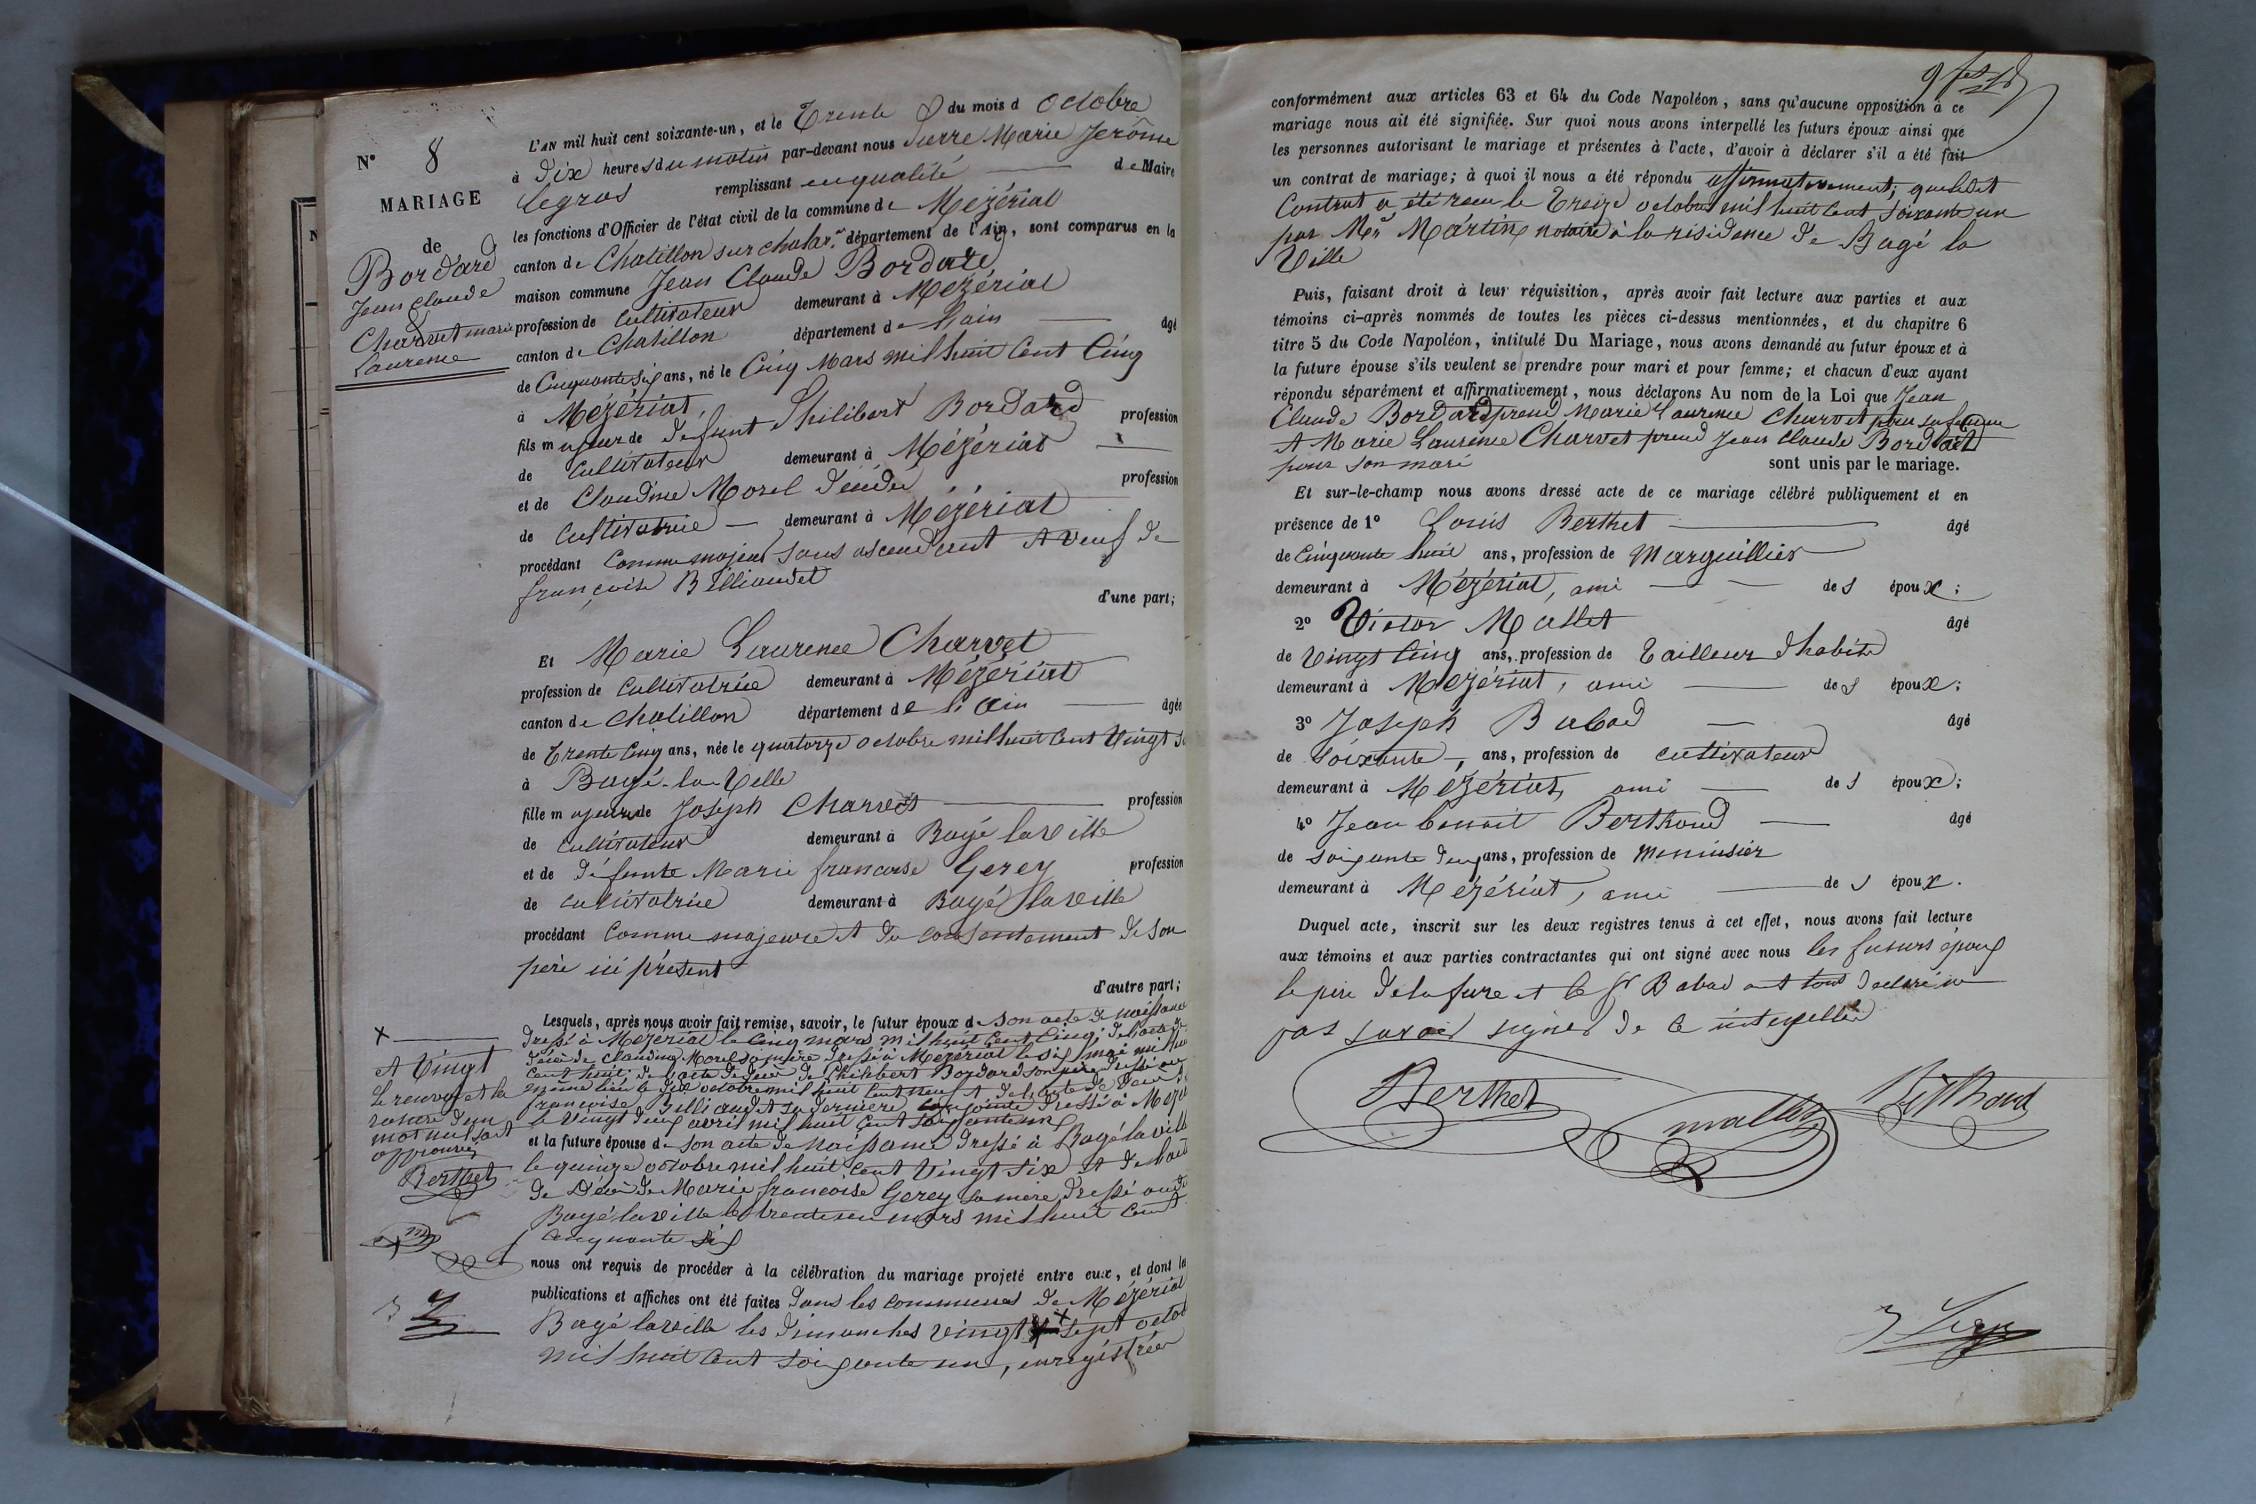 N° 8
MARIAGE
de
Bordard
Jean Claude
&
Charvet marie
Laurence
L'AN mil huit cent soixante-un, et le Trente du mois d octobre
à Dix heures du matin par-devant nous Pierre Marie Jerôme
Legras remplissant en qualité de Maire
les fonctions d'Officier de l'état civil de la commune de Mézériat
canton de Chatillon sur chalar.ne département de l'Ain, sont comparus en la
maison commune Jean Claude Bordard
profession de cultivateur demeurant à Mézériat
canton de Chatillon département de l'ain âgé
de Cinquante six ans, né le Cinq Mars mil huit Cent Cinq
à Mézériat,
fils majeur de défunt Philibert Bordard profession
de Cultivateur demeurant à Mézériat
et de Claudine Morel décédée profession
de Cultivatrice demeurant à Mézériat
procédant Comme majeur sans ascendant et veuf de
françoise Billiaudet
d'une part;
Et Marie Laurence Charvet
profession de Cultivatrice demeurant à Mézériat
canton de Chatillon département de l'ain âgée
de Trente Cinq ans, née le quatorze octobre mil huit Cent Vingt
à Bagé-la-Ville
fille majeure de Joseph Charvet profession
de cultivateur demeurant à Bagé laville
et de défunte Marie francoise Gerey profession
de cultivatrice demeurant à Bagé laville
procédant Comme majeure et du consentement de son
père ici présent
d'autre part;
Lesquels, après nous avoir fait remise, savoir, le futur époux de son acte de naissance
dressé à Mézériat le Cinq mars mil huit Cent Cinq; de l'acte de
décès de Claudine Morel sa mère dressé à Mézériat le six mai mil huit
Cent huit; de l'acte de décès de Philibert Bordard son père dressé au
même lieu le dix octobre mil huit Cent neuf et de l'acte de décès de
françoise Billiaudet sa dernière conjointe dressé à Méz
le Vingt deux avril mil huit Cent soixante un
et la future épouse de son acte de naissance dressé à Bagé laville
le quinze octobre mil huit Cent Vingt six et de l'acte
de décès de Marie francoise Gerey sa mère dressé au dt
Bagé laville le trente un mars mil huit Cent
Cinquante six
nous ont requis de procéder à la célébration du mariage projeté entre eux, et dont les
publications et affiches ont été faites dans les communes de Mézériat
Bagé laville les dimanches vingt x sept octob
mil huit Cent soixante un, enregistrées
x
et Vingt
Le renvoi et la
rature d'un
mot nul sont
approuvés
Berthet
conformément aux articles 63 et 64 du Code Napoléon, sans qu'aucune opposition à ce
mariage nous ait été signifiée. Sur quoi nous avons interpellé les futurs époux ainsi que
les personnes autorisant le mariage et présentes à l'acte, d'avoir à déclarer s'il a été fait
un contrat de mariage; à quoi il nous a été répondu affirmativement; que ledit
Contrat a été recu le Treize octobre mil huit Cent soixante un
par Me Martin notaire à la résidence de Bagé la
Ville
Puis, faisant droit à leur réquisition, après avoir fait lecture aux parties et aux
témoins ci-après nommés de toutes les pièces ci-dessus mentionnées, et du chapitre 6
titre 5 du Code Napoléon, intitulé Du Mariage, nous avons demandé au futur époux et à
la future épouse s'ils veulent se prendre pour mari et pour femme; et chacun d'eux ayant
répondu séparément et affirmativement, nous déclarons Au nom de la Loi que Jean
Claude Bordard prend Marie Laurence Charvet pour sa femme
et Marie Laurence Charvet prend Jean Claude Bordard
pour son mari sont unis par le mariage.
Et sur-le-champ nous avons dressé acte de ce mariage célébré publiquement et en
présence de 1° Louis Berthet âgé
de Cinquante huit ans, profession de Marguillier
demeurant à Mézériat, ami des époux;
2° Victor Mallet âgé
de Vingt Cinq ans, profession de Tailleur d'habits
demeurant à Mézériat, ami des époux;
3° Joseph Babad âgé
de soixante, ans, profession de cultivateur
demeurant à Mézériat, ami des époux;
4° Jean benoit Berthoud âgé
de soixante deux ans, profession de Menuisier
demeurant à Mézériat, ami des époux.
Duquel acte, inscrit sur les deux registres tenus à cet effet, nous avons fait lecture
aux témoins et aux parties contractantes qui ont signé avec nous les futurs époux
le père de la fure et le sr Babad ont tous déclaré ne
pas savoir signer de ce interpellés
Berthet
mallet